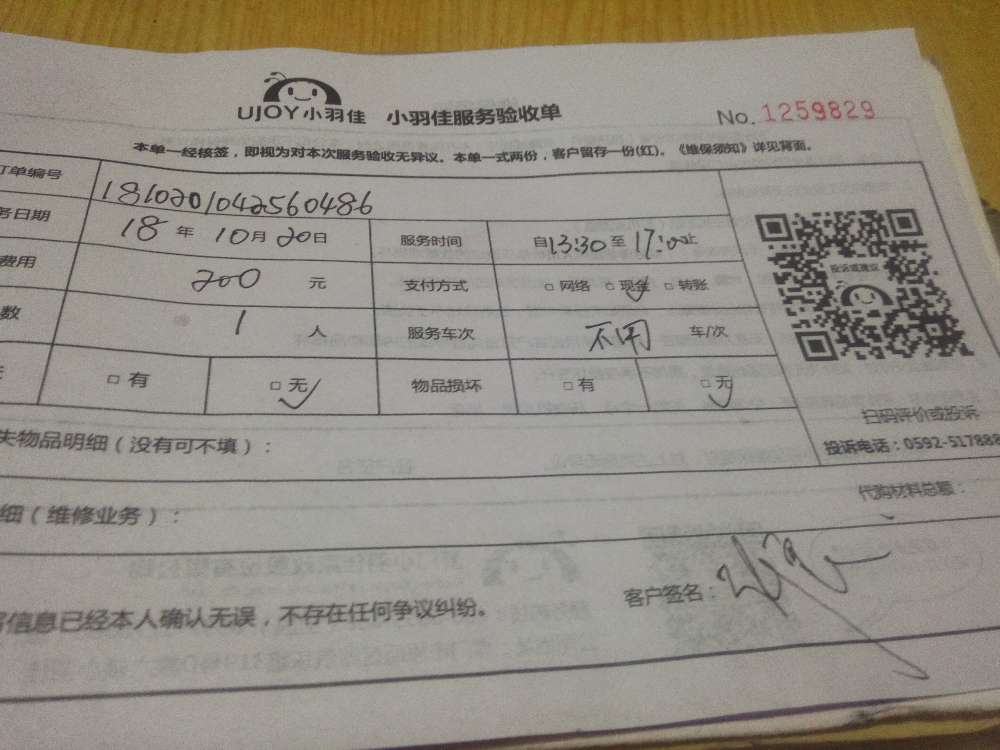 UJOY小羽佳 小羽佳服务验收单 No.1259829
本单一经核签，即视为对本次服务验收无异议。本单一式两份，客户留存一份(红)。《维保须知》详见背面。
订单编号 1810201042560486
务日期 18年10月20日 服务时间 自13:30至17:00止
费用 200元 支付方式 □网络 □现金 □转账
数 1人 服务车次 不用 车/次
□有 □无 物品损坏 □有 □无
投诉或建议
扫码评价或投诉
失物品明细（没有可不填）：
投诉电话：0592-517888
细（维修业务）：
代购材料总额：
信息已经本人确认无误，不存在任何争议纠纷。
客户签名：